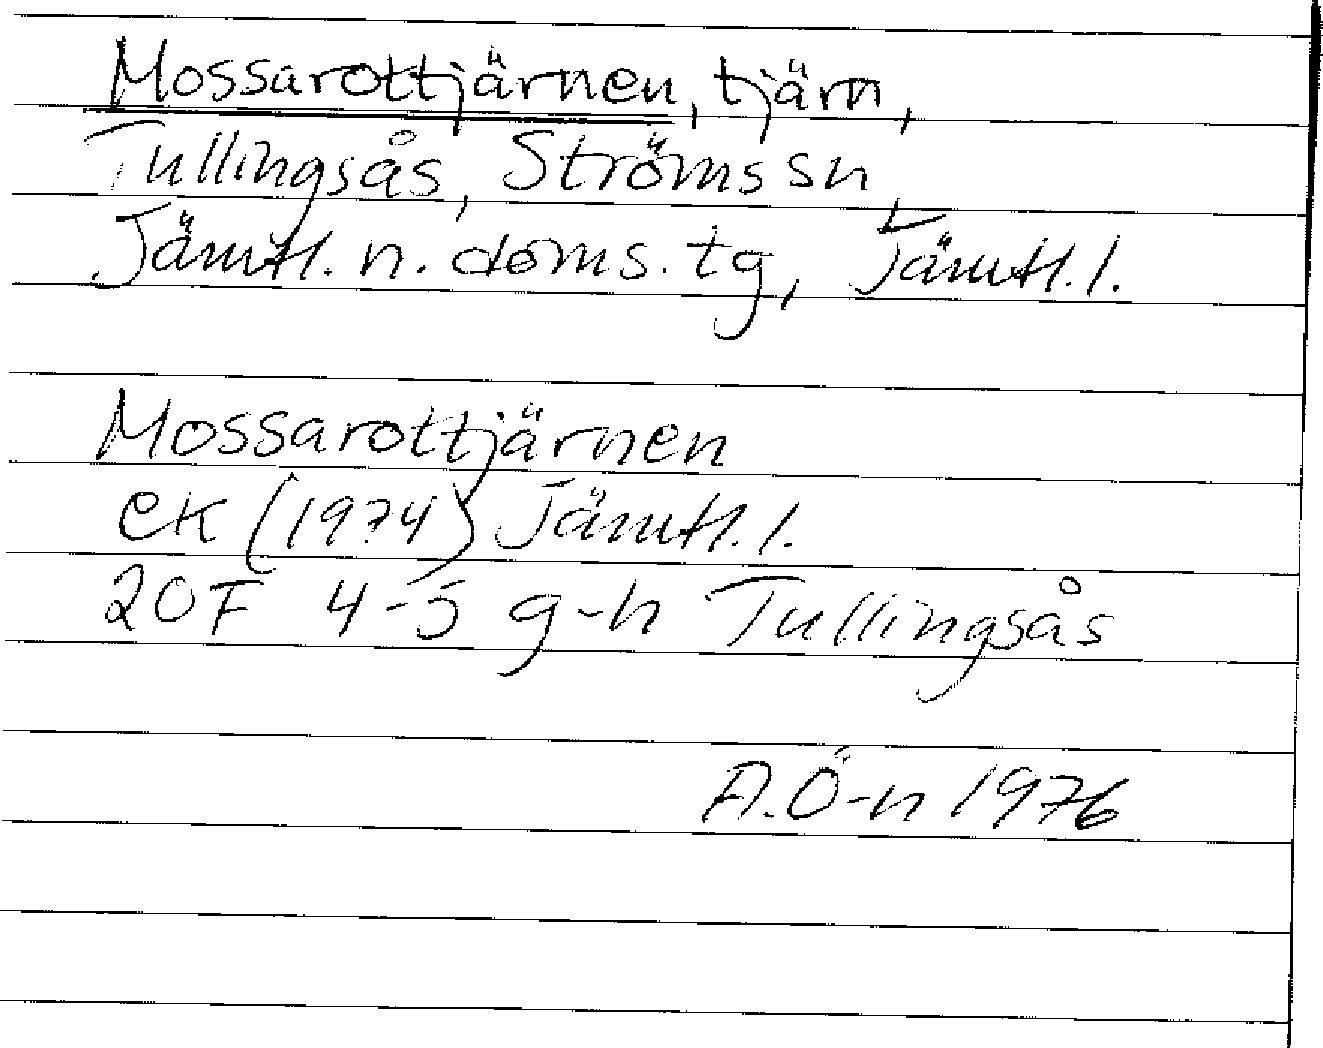 Mossarottjärnen, tjärn,
Tullingsås, Ströms sn,
Jämtl. n. doms. tg, Jämtl. l.
Mossarottjärnen
ek (1974) Jämtl. l.
20F 4-5 g-h Tullingsås
A.Ö-n 1976